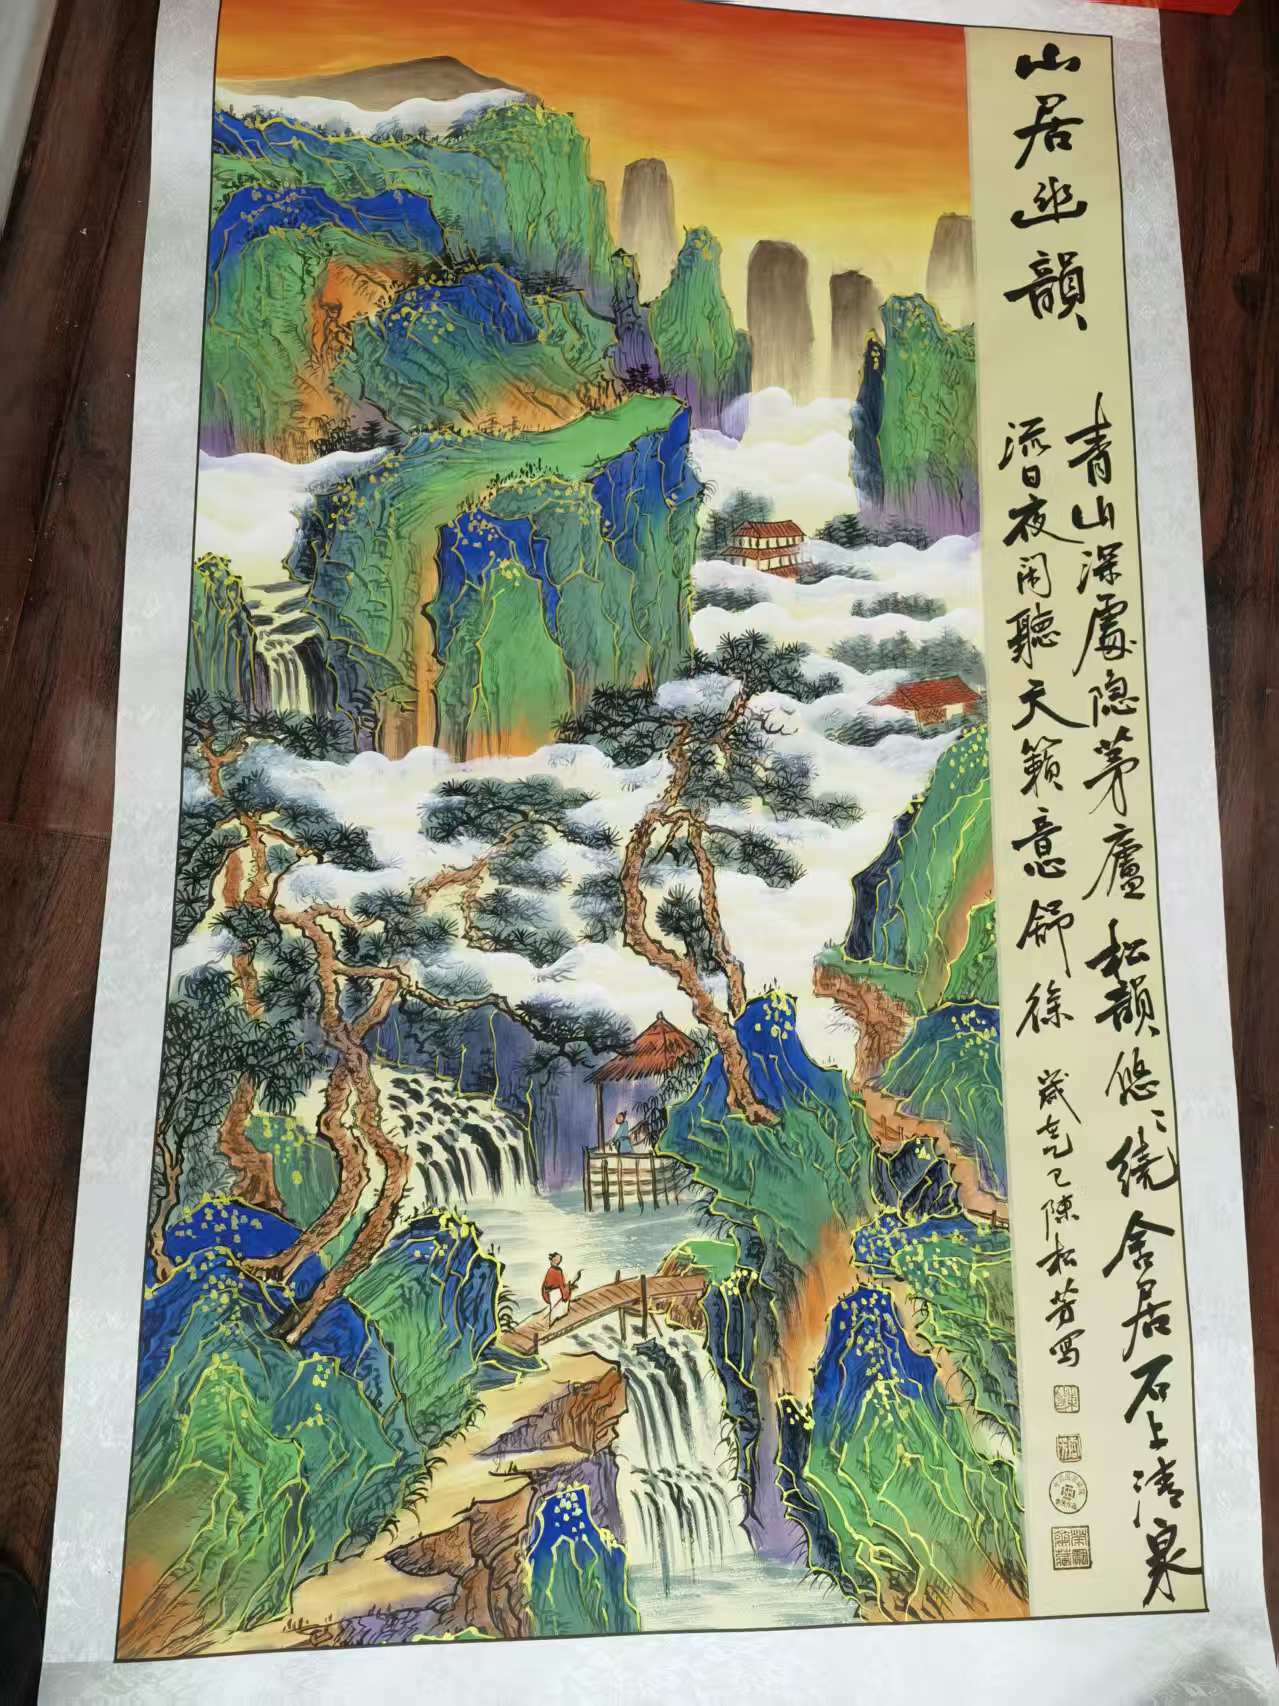 山居幽韻
青山深處隐茅廬松韻悠〻繞舍居石上清泉
流日夜闲聽天籟意舒徐
歲乞巳陳松芳寫